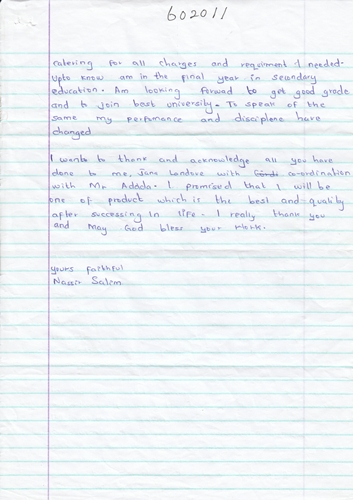 602011
catering for all charges and requirment I needed.
Upto know am in the final year in secondary
education. Am looking forward to get good grade
and to join best university. To speak of the
same my perfomance and discipline have
changed
I wants to thank and acknowledge all you have
done to me, Jane Landore with co-ordination
with Mr Addda. I promised that I will be
one of product which is the best and quality
after successing in life. I really thank you
and may God bless your work.
yours faithful
Nassir Salem